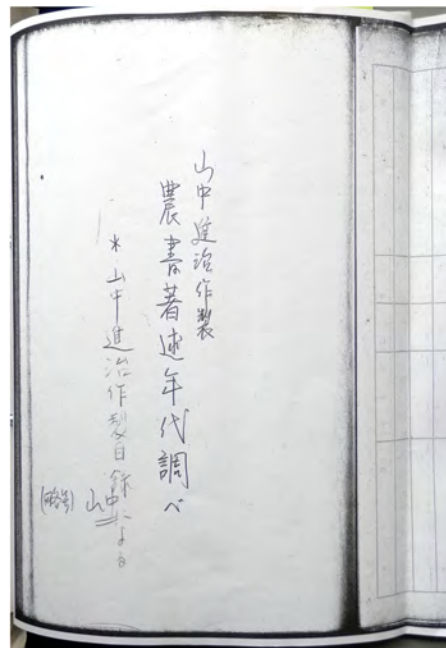 山中進治作製
農書著述年代調べ
*山中進治作製目録による
(略号) 山中